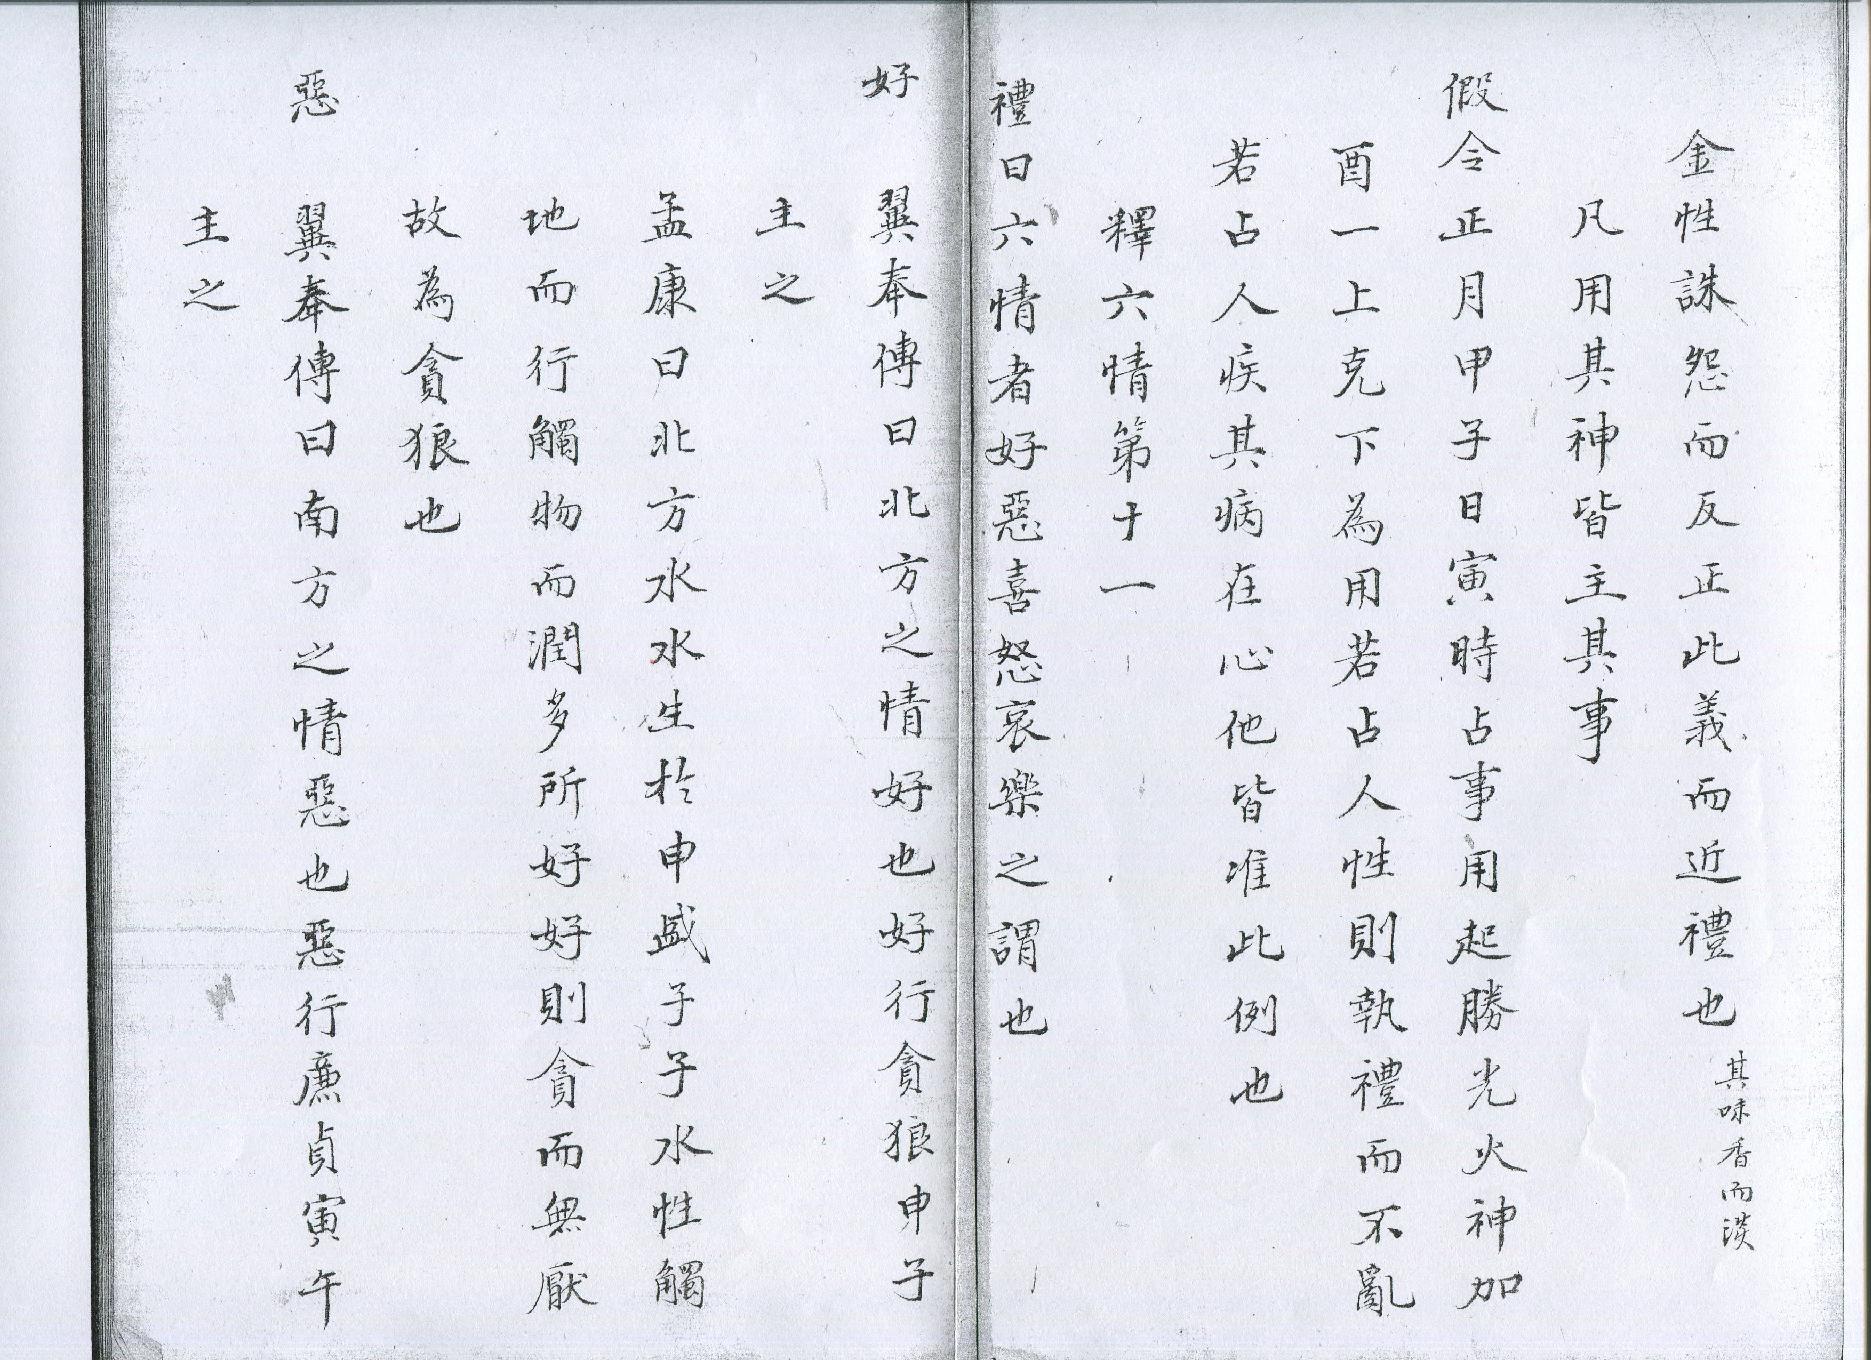 金性誅怨而反正此義而近禮也其味香而淡
凡用其神皆主其事
假令正月甲子日寅時占事用起勝光火神加
酉一上克下為用若占人性則執禮而不亂
若占人疾其病在心他皆准此例也
釋六情第十一
禮曰六情者好惡喜怒哀樂之謂也
好 翼奉傳曰北方之情好也好行貪狼申子
主之
孟康曰北方水水生於申盛子子水性觸
地而行觸物而潤多所好好則貪而無厭
故為貪狼也
惡 翼奉傳曰南方之情惡也惡行廉貞寅午
主之